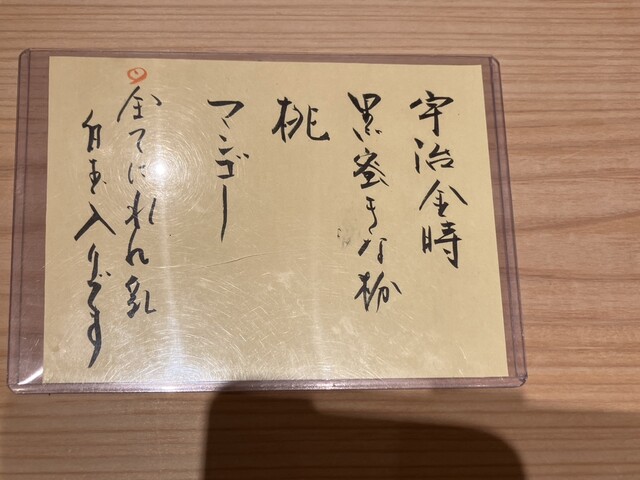 宇治金時
黒蜜きな粉
桃
マンゴー
全てにれん乳
白玉入ります